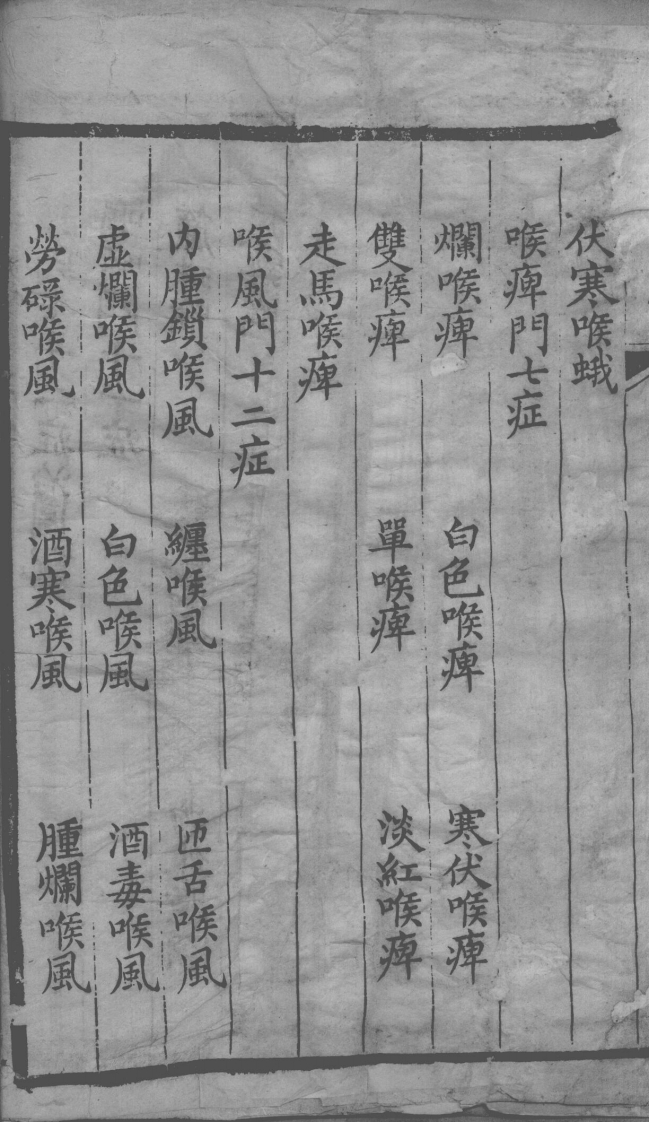 伏寒喉蛾
喉痺門七症
爛喉痺　白色喉痺　寒伏喉痺
雙喉痺　單喉痺　淡紅喉痺
走馬喉痺
喉風門十二症
内腫鎖喉風　纏喉風　匝舌喉風
虛爛喉風　白色喉風　酒毒喉風
勞碌喉風　酒寒喉風　腫爛喉風